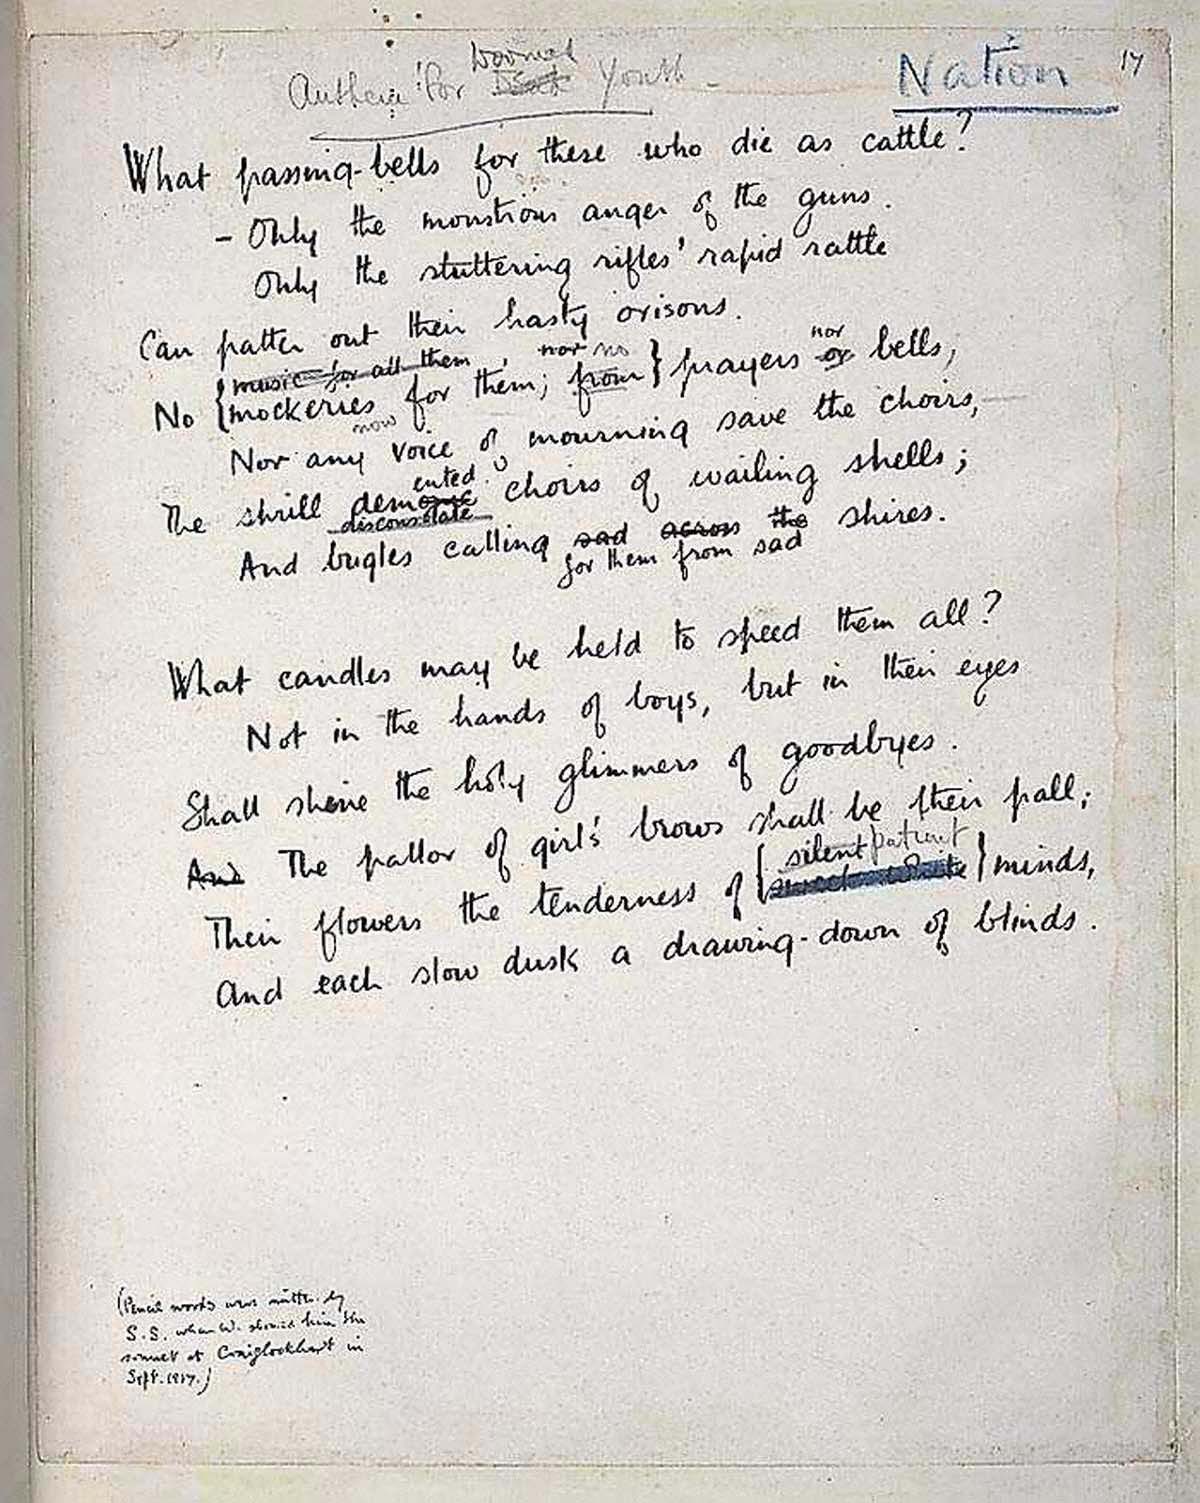 Anthem for Doomed Dead Youth -
Nation
17
What passing-bells for these who die as cattle?
- Only the monstrous anger of the guns.
Only the stuttering rifles' rapid rattle
Can patter out their hasty orisons.
music for all them, nor no nor
No mockeries for them; from prayers or bells,
now
Nor any voice of mourning save the choirs,-
ented
The shrill demonic choirs of wailing shells;
disconsolate
And bugles calling sad across the shires.
for them from sad
What candles may be held to speed them all?
Not in the hands of boys, but in their eyes
Shall shine the holy glimmers of goodbyes.
And The pallor of girls' brows shall be their pall;
silent patient
Their flowers the tenderness of minds,
And each slow dusk a drawing-down of blinds.
(Pencil words were written by
S.S. when W. showed him the
sonnet at Craiglockhart in
Sept. 1917.)